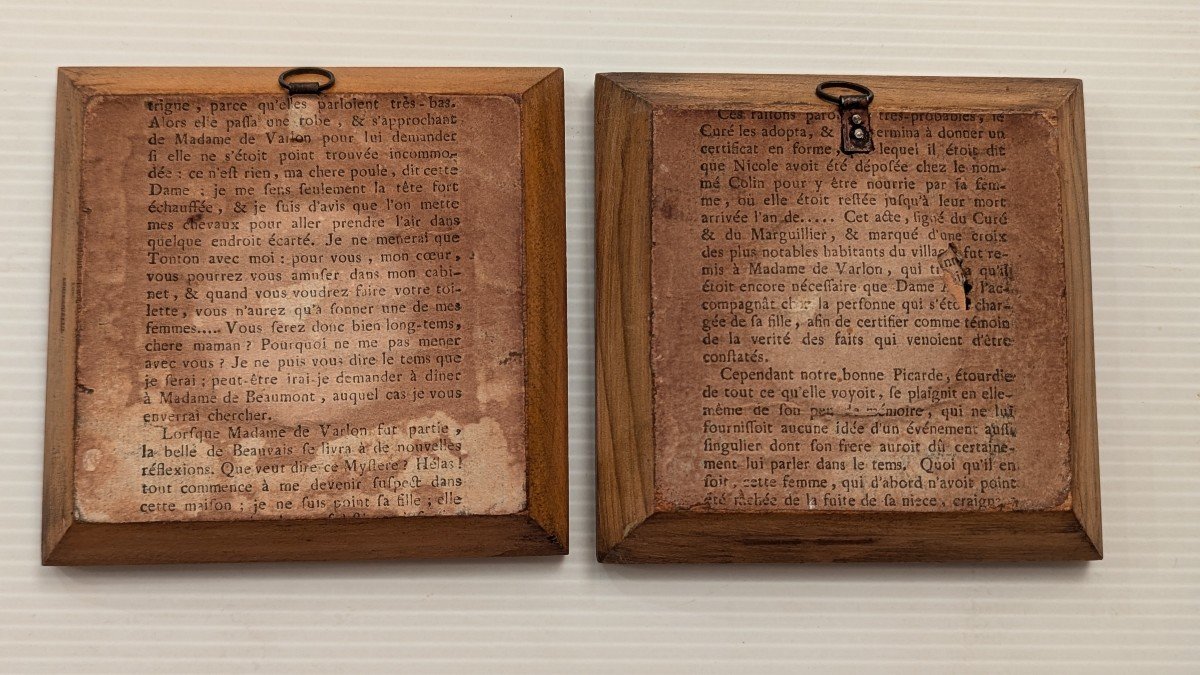 trigue, parce qu'elles parloient très-bas.
Alors elle paſſa une robe, & s'approchant
de Madame de Varlon pour lui demander
ſi elle ne s'étoit point trouvée incommo-
dée : ce n'est rien, ma chere poule, dit cette
Dame ; je me ſens ſeulement la tête fort
échauffée, & je ſuis d'avis que l'on mette
mes chevaux pour aller prendre l'air dans
quelque endroit écarté. Je ne menerai que
Tonton avec moi : pour vous, mon cœur,
vous pourrez vous amuſer dans mon cabi-
net, & quand vous voudrez faire votre toi-
lette, vous n'aurez qu'à ſonner une de mes
femmes.... Vous ſerez donc bien long-tems,
chere maman ? Pourquoi ne me pas mener
avec vous ? Je ne puis vous dire le tems que
je ſerai ; peut-être irai-je demander à dîner
à Madame de Beaumont, auquel cas je vous
enverrai chercher.
Lorſque Madame de Varlon fut partie,
la belle de Beauvais ſe livra à de nouvelles
réflexions. Que veut dire ce Myſtere ? Hélas !
tout commence à me devenir ſuſpect dans
cette maiſon ; je ne ſuis point ſa fille ; elle
Ces raiſons très-probables, le
Curé les adopta, & à donner un
certificat en forme, lequel il étoit dit
que Nicole avoit été dépoſée chez le nom-
mé Colin pour y être nourrie par ſa fem-
me, où elle étoit reſtée juſqu'à leur mort
arrivée l'an de..... Cet acte, ſigné du Curé
& du Marguillier, & marqué d'une croix
des plus notables habitants du fut re-
mis à Madame de Varlon, qui qu'il
étoit encore néceſſaire que Dame l'ac-
compagnât chez la perſonne qui s'étoit char-
gée de ſa fille, afin de certifier comme témoin
de la verité des faits qui venoient d'être
conſtatés.
Cependant notre bonne Picarde, étourdie
de tout ce qu'elle voyoit, ſe plaignit en elle-
même de ſon peu de mémoire, qui ne lui
fourniſſoit aucune idée d'un événement auſſi
ſingulier dont ſon frere auroit dû certaine-
ment lui parler dans le tems. Quoi qu'il en
ſoit, cette femme, qui d'abord n'avoit point
été fâchée de la fuite de ſa niece,